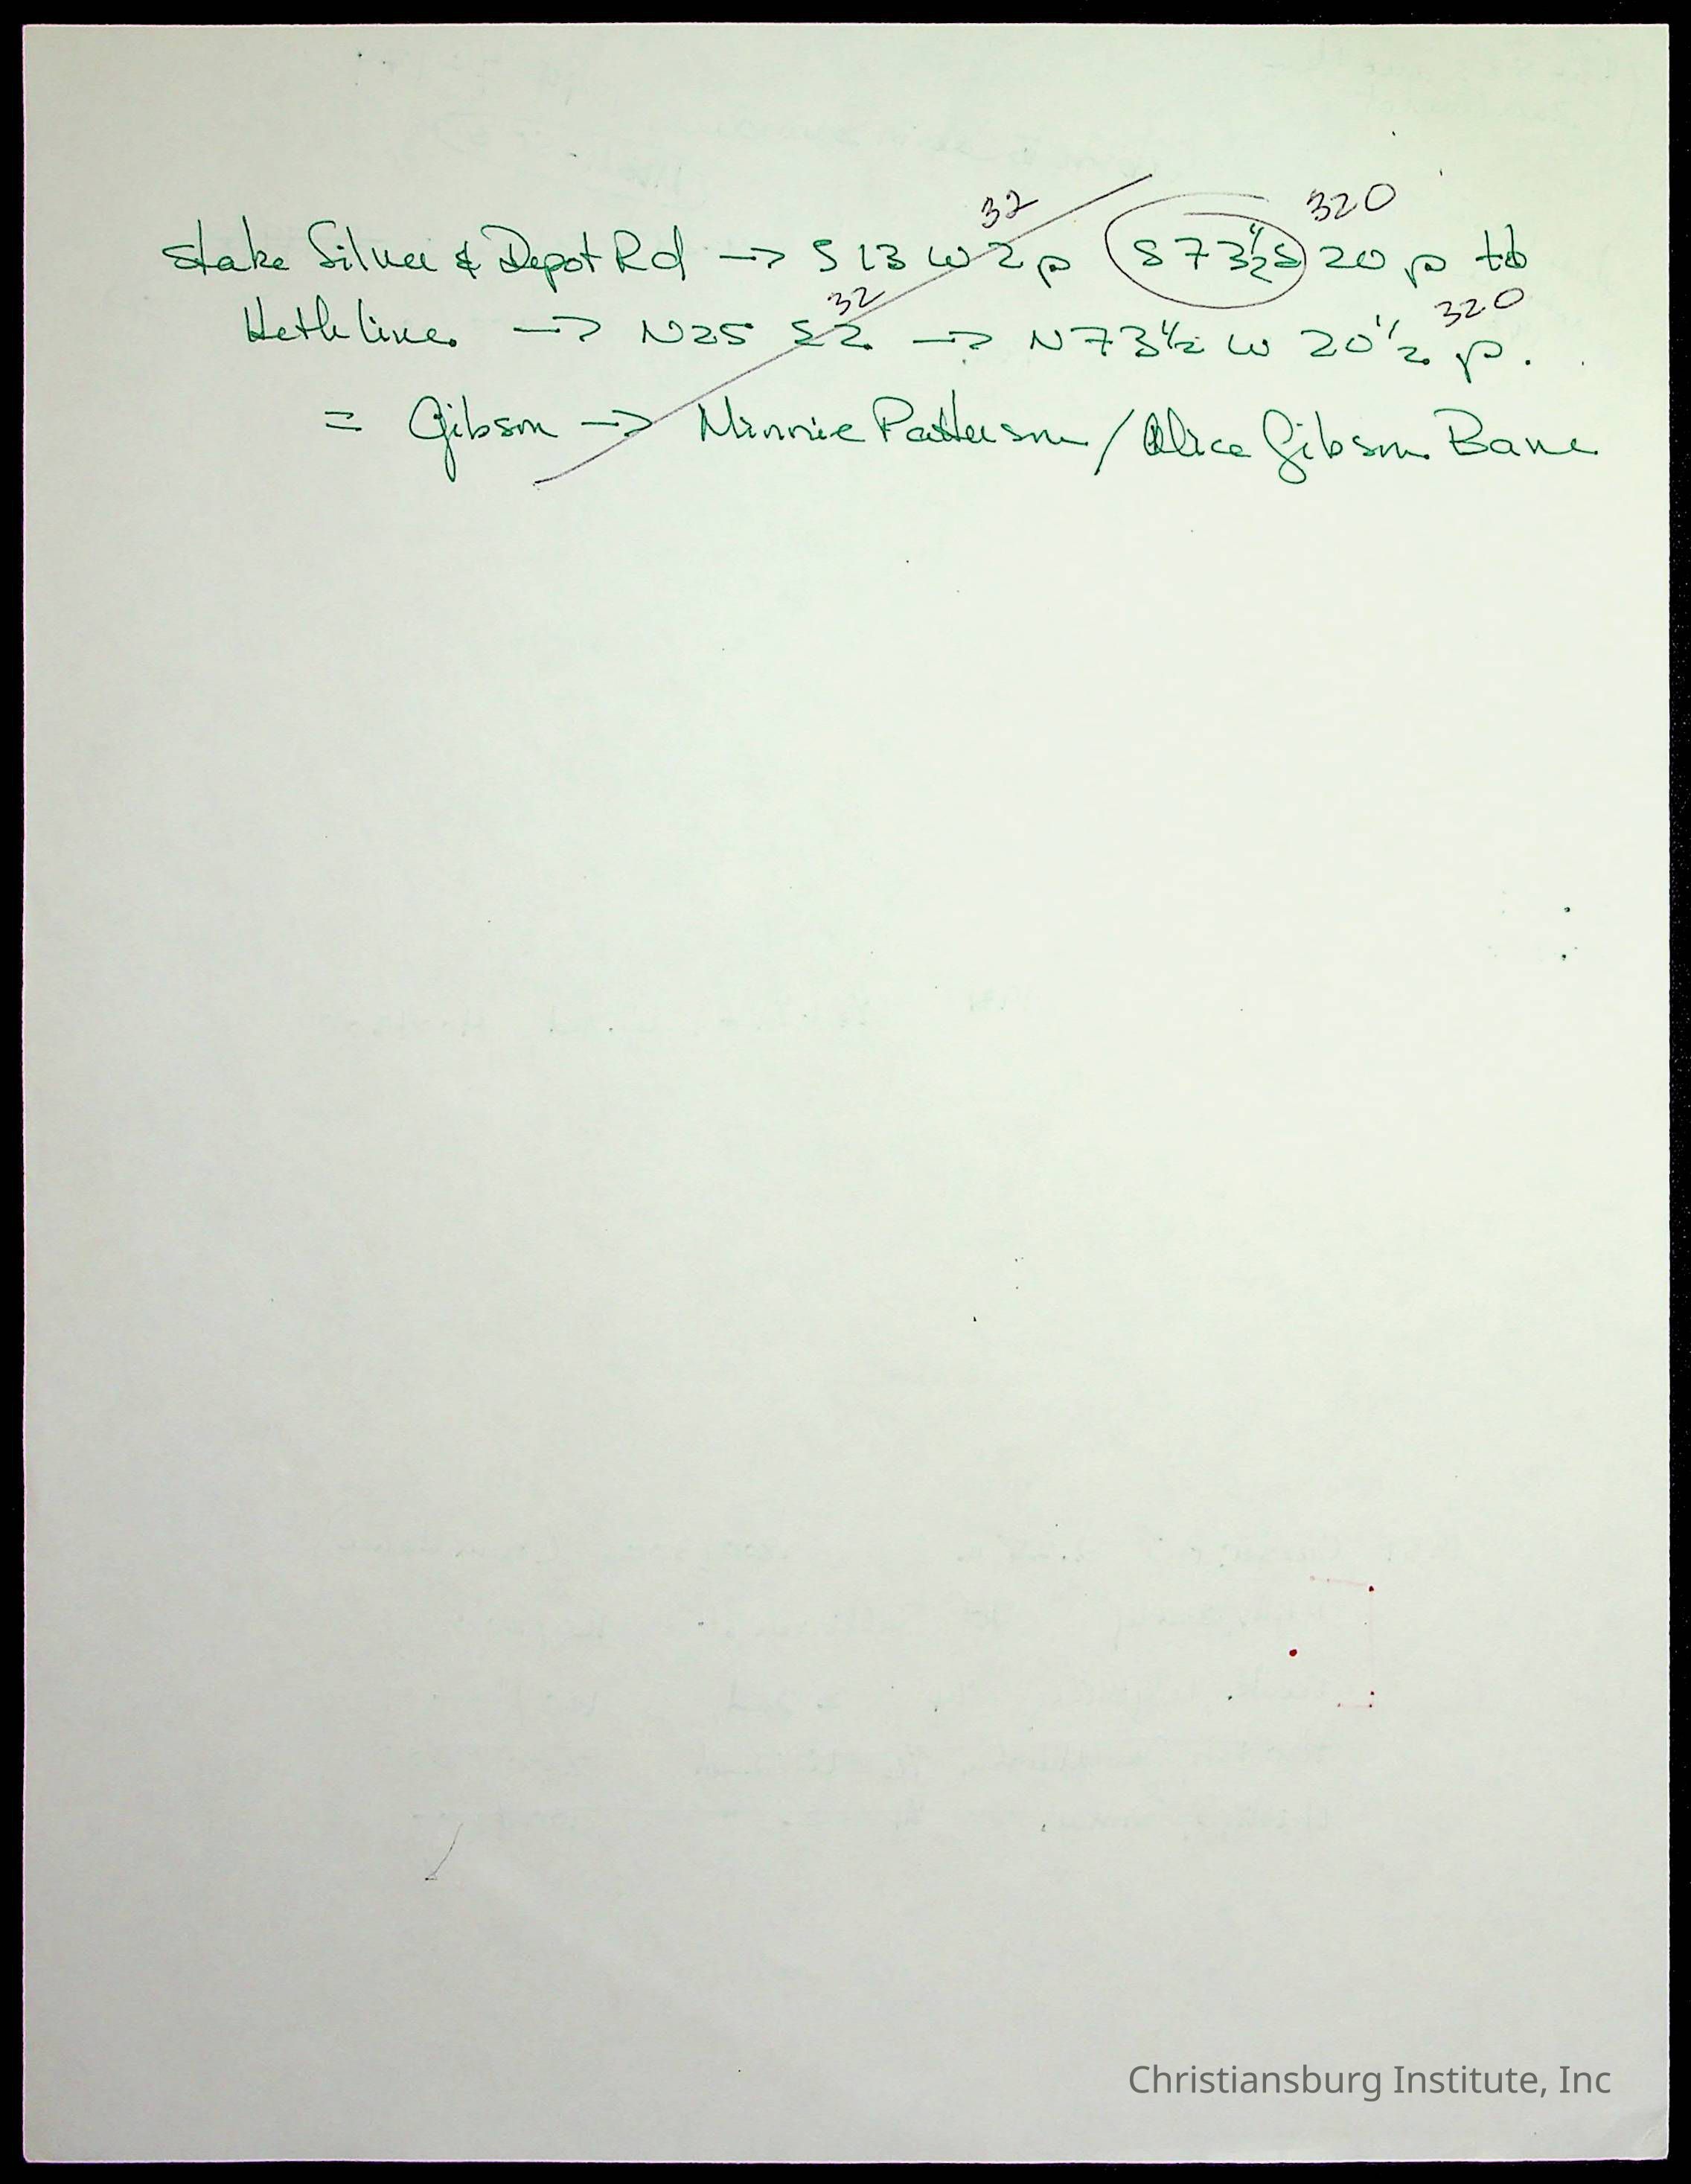 32 320
stake Silver & Depot Rd → S 13 W 2 p S 73 1/2 S 20 p to
32 320
Heth line. → N25 E2 → N73 1/2 W 20 1/2 p.
= Gibson → Minnie Patterson / Alice Gibson Bane
Christiansburg Institute, Inc